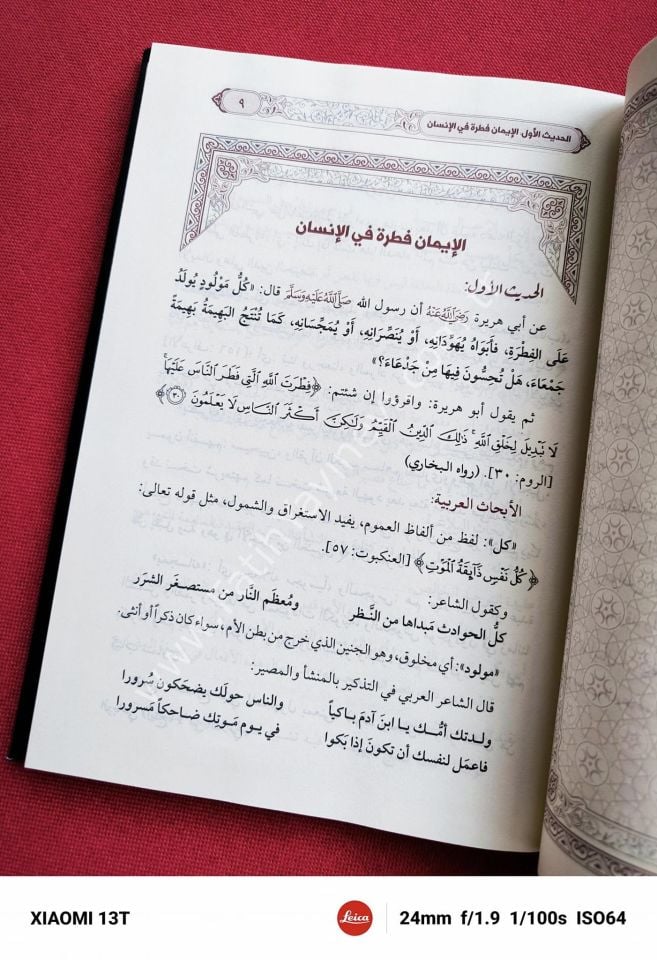 الحديث الأول: الإيمان فطرة في الإنسان
٩
الإيمان فطرة في الإنسان
الحديث الأول:
عن أبي هريرة رَضِيَ اللَّهُ عَنْهُ أن رسول الله صَلَّى اللَّهُ عَلَيْهِ وَسَلَّمَ قال: «كُلُّ مَوْلُودٍ يُولَدُ
عَلَى الفِطْرَةِ، فَأَبَوَاهُ يُهَوِّدَانِهِ، أَوْ يُنَصِّرَانِهِ، أَوْ يُمَجِّسَانِهِ، كَمَا تُنْتَجُ البَهِيمَةُ بَهِيمَةً
جَمْعَاءَ، هَلْ تُحِسُّونَ فِيهَا مِنْ جَدْعَاءَ؟»
ثم يقول أبو هريرة: واقرؤوا إن شئتم: ﴿فِطْرَتَ اللَّهِ الَّتِي فَطَرَ النَّاسَ عَلَيْهَا
لَا تَبْدِيلَ لِخَلْقِ اللَّهِ ذَٰلِكَ الدِّينُ الْقَيِّمُ وَلَٰكِنَّ أَكْثَرَ النَّاسِ لَا يَعْلَمُونَ ٣٠﴾
[الروم: ٣٠]. (رواه البخاري)
الأبحاث العربية:
«كل»: لفظ من ألفاظ العموم، يفيد الاستغراق والشمول، مثل قوله تعالى:
﴿كُلُّ نَفْسٍ ذَائِقَةُ الْمَوْتِ﴾ [العنكبوت: ٥٧].
وكقول الشاعر:
كلُّ الحوادث مَبداها من النَّظر ومُعظَم النَّار من مستصغَر الشرَر
«مولود»: أي مخلوق، وهو الجنين الذي خرج من بطن الأم، سواء كان ذكراً أو أنثى.
قال الشاعر العربي في التذكير بالمنشأ والمصير:
ولدتك أمُّك يا ابن آدمَ باكياً والناس حولَك يضحَكون سُرورا
فاعمَل لنفسك أن تكونَ إذا بَكوا في يوم مَوتِك ضاحكاً مَسرورا
XIAOMI 13T
Leica
24mm f/1.9 1/100s ISO64